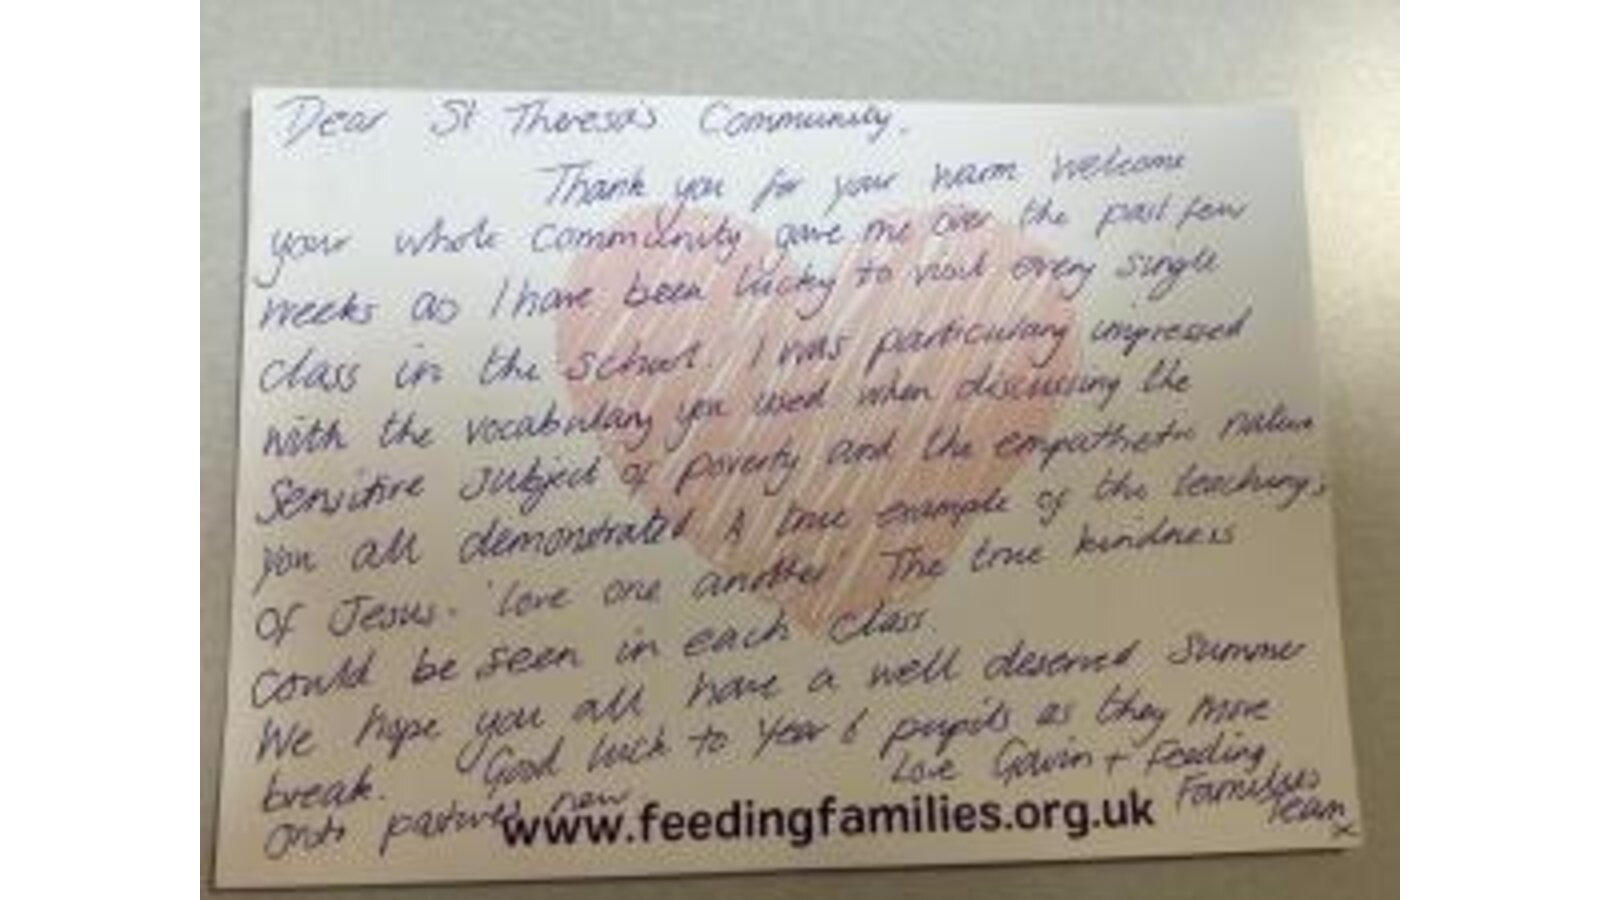 Dear St Theresa's Community,
Thank you for your warm welcome
your whole community gave me over the past few
weeks as I have been lucky to visit every single
class in the school. I was particulary impressed
with the vocabulary you used when discussing the
sensitive subject of poverty and the empathetic nature
you all demonstrated. A true example of the teachings
of Jesus - 'love one another'. The true kindness
could be seen in each class.
We hope you all have a well deserved summer
break. Good luck to Year 6 pupils as they move
onto pastures new
Love Gavin + Feeding
Families
Team
x
www.feedingfamilies.org.uk